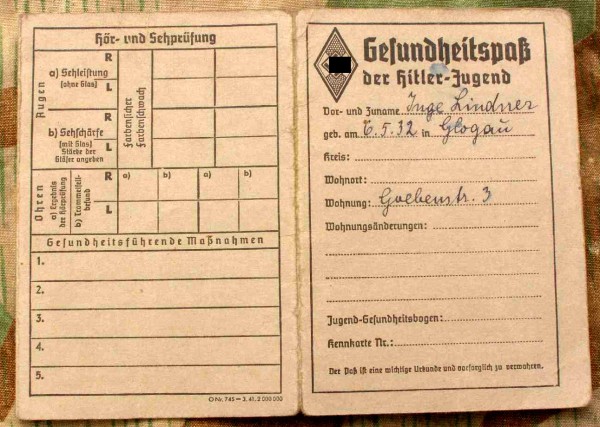 Hör- und Sehprüfung
Augen
a) Sehleistung
(ohne Glas)
R
L
b) Sehschärfe
(mit Glas)
Stärke der
Gläser angeben
R
L
Farbensicher
Farbenschwach
Ohren
a) Ergebnis
der Hörprüfung
b) Trommelfell-
befund
R
L
a) b) a) b)
Gesundheitsführende Maßnahmen
1.
2.
3.
4.
5.
O Nr. 745 – 3. 41. 2 000 000
Gesundheitspaß
der Hitler-Jugend
Vor- und Zuname Inge Lindner
geb. am 6.5.32 in Glogau
Kreis:
Wohnort:
Wohnung: Goebenstr. 3
Wohnungsänderungen:
Jugend-Gesundheitsbogen:
Kennkarte Nr.:
Der Paß ist eine wichtige Urkunde und sorgfältig zu verwahren.